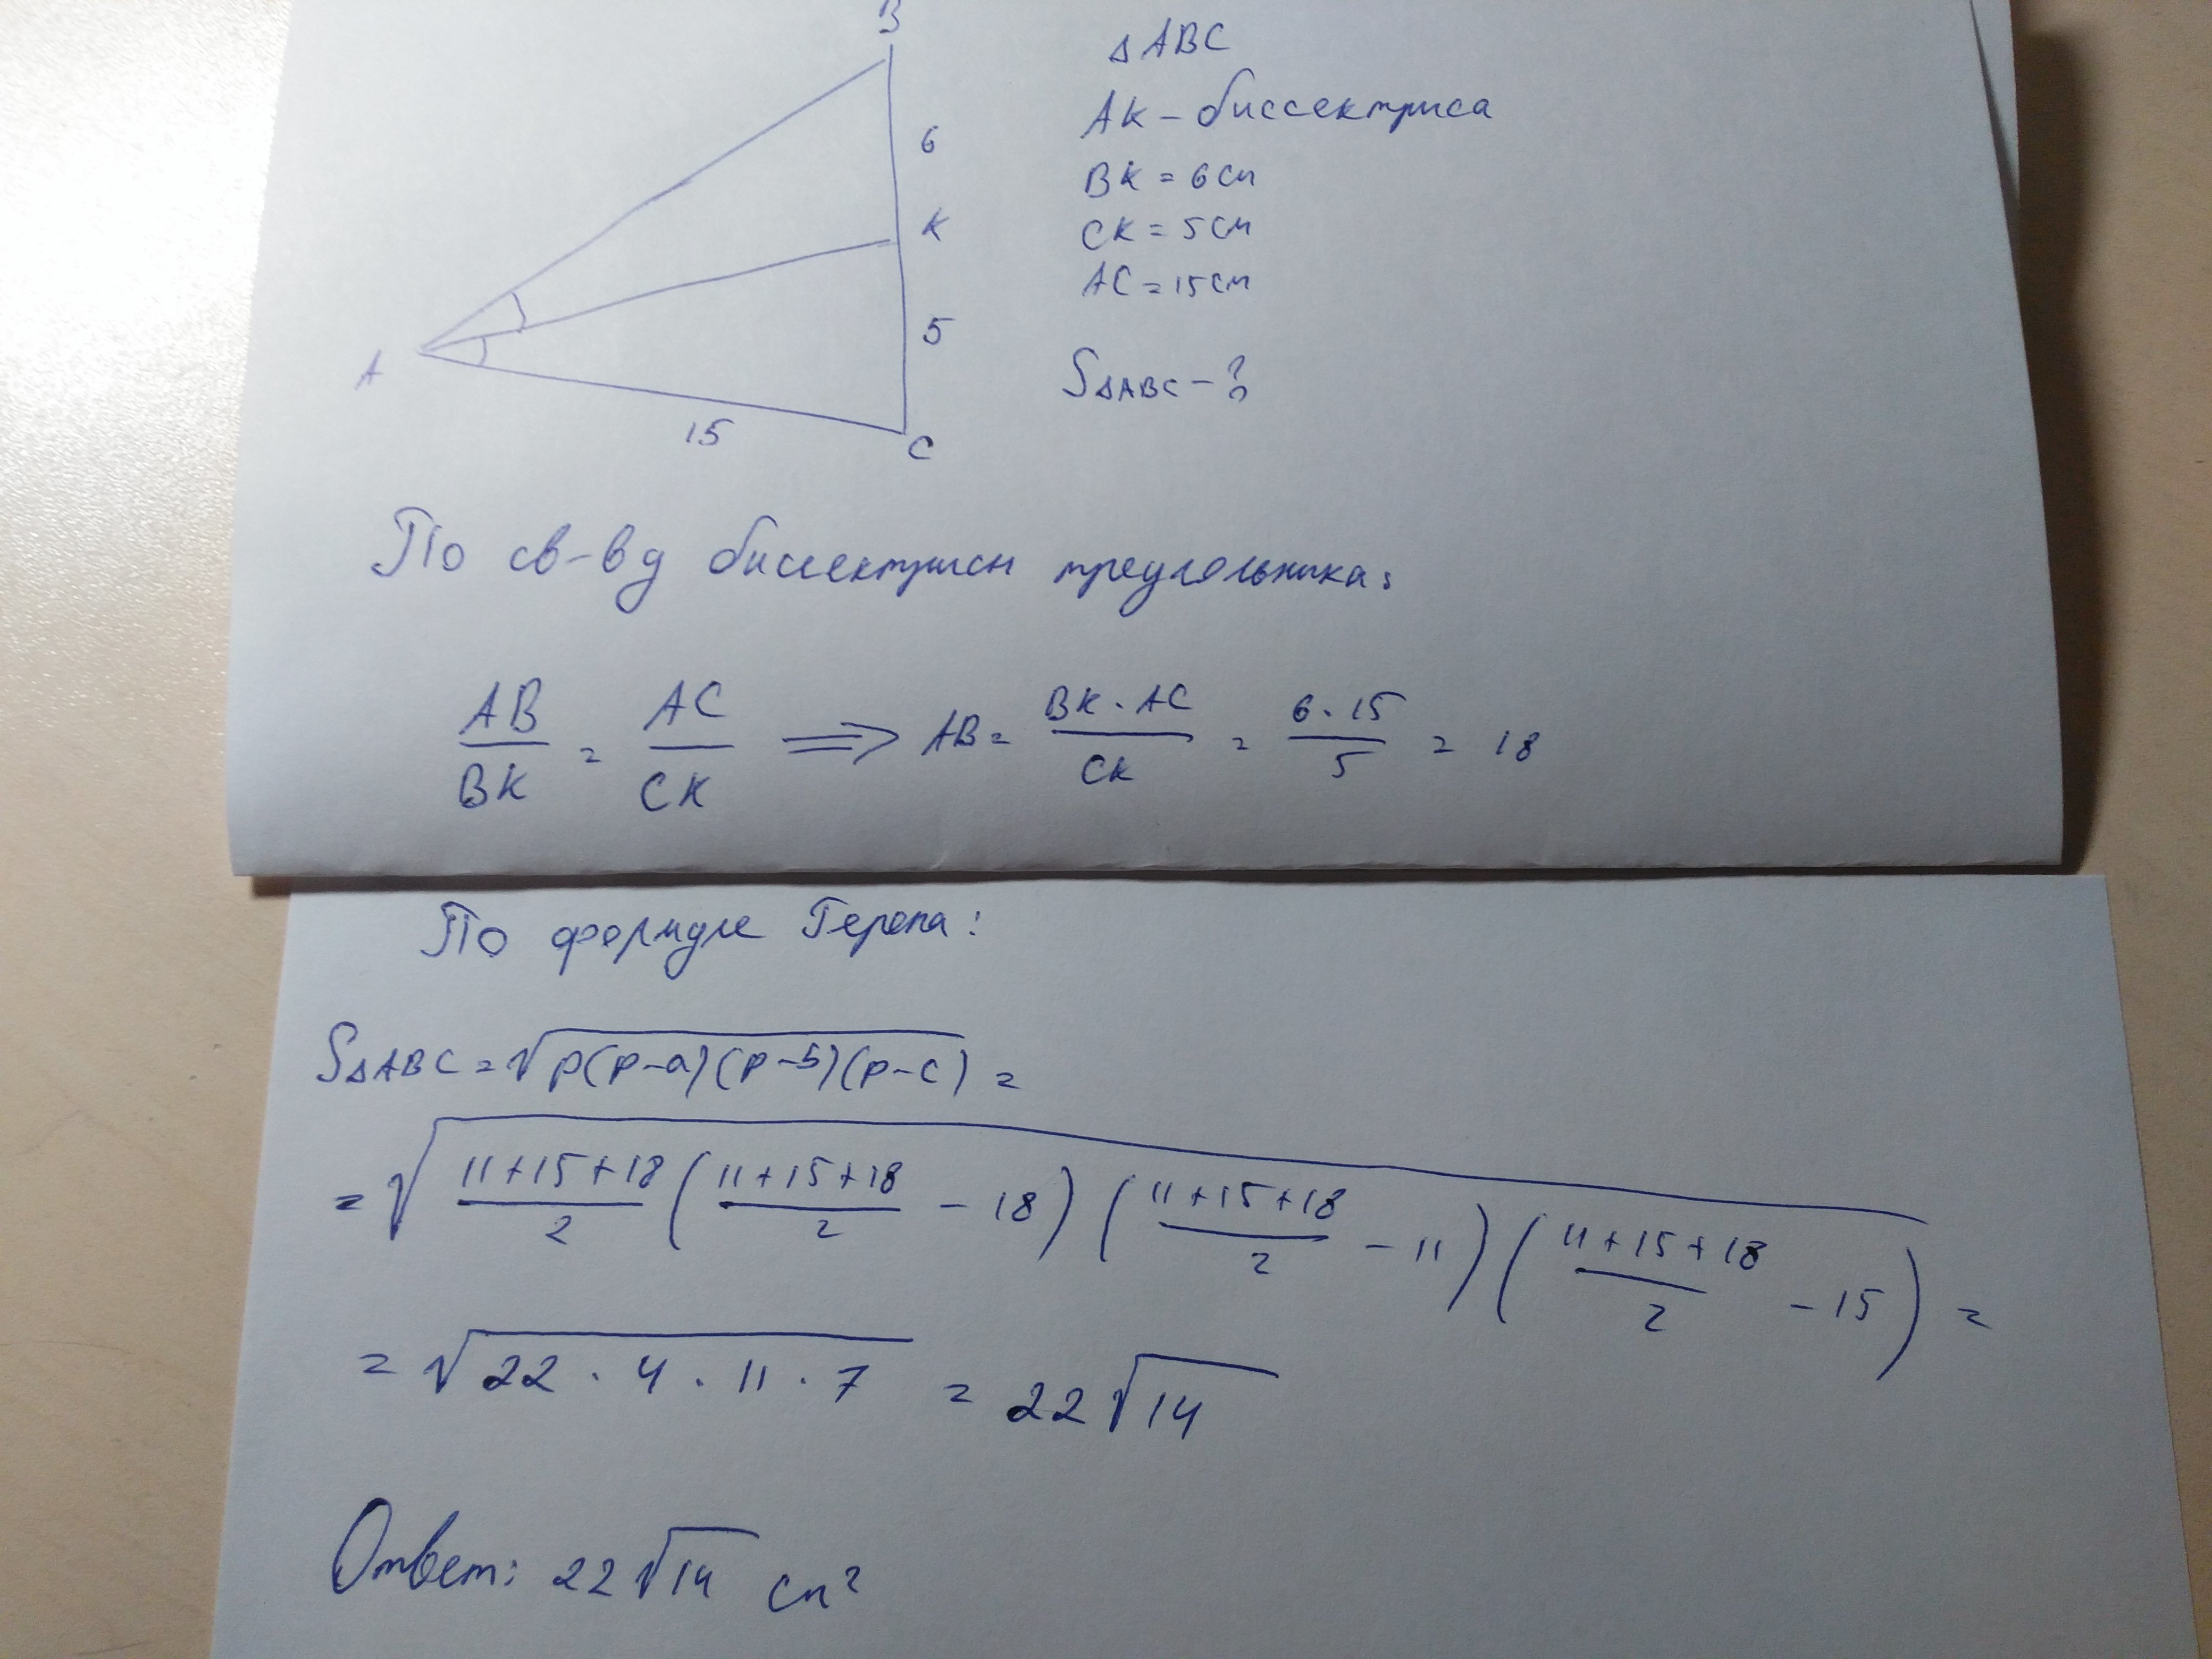 B
6
K
5
A
15
C
△ABC
AK – биссектриса
BK = 6 см
CK = 5 см
AC = 15 см
S△ABC – ?
По св-ву биссектрисы треугольника:
AB/BK = AC/CK ⟹ AB = BK · AC/CK = 6 · 15/5 = 18
По формуле Герона:
S△ABC = √(p(p-a)(p-b)(p-c)) =
= √((11+15+18)/2 ((11+15+18)/2 - 18) ((11+15+18)/2 - 11) ((11+15+18)/2 - 15)) =
= √(22 · 4 · 11 · 7) = 22√14
Ответ: 22√14 см²